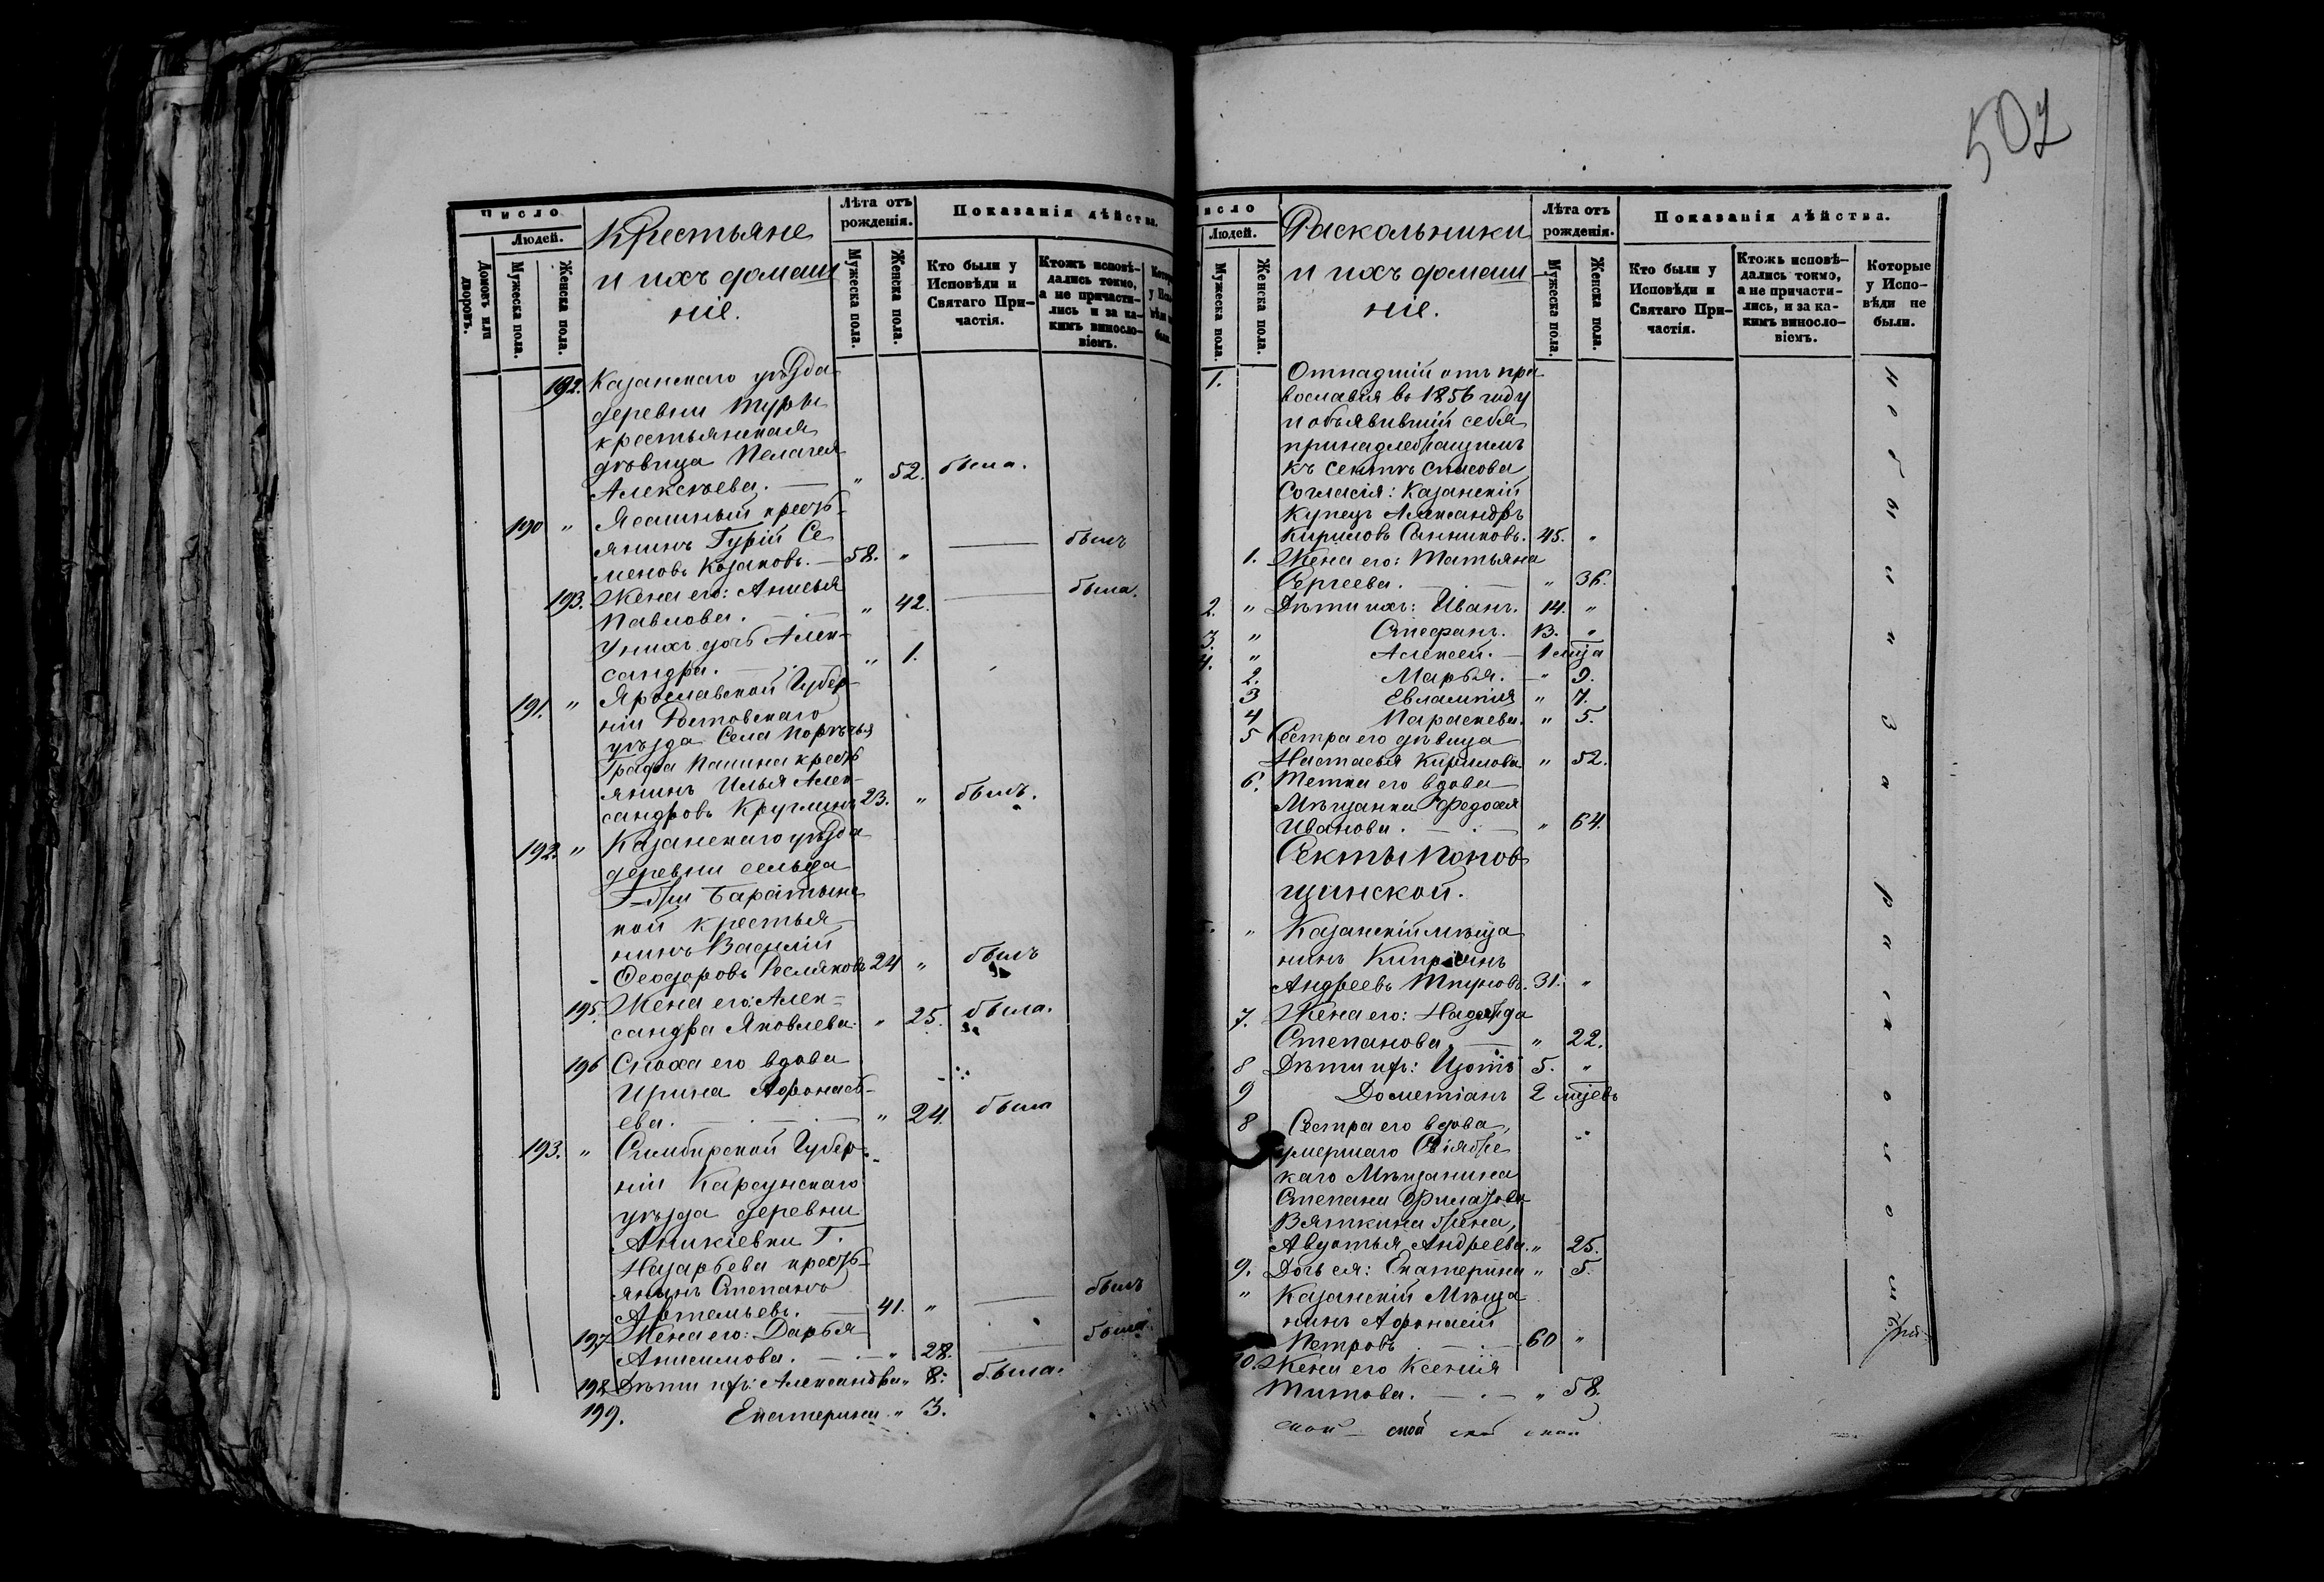 502
Число
Людей.
Домовъ или дворовъ.
Мужеска пола.
Женска пола.
Крестьяне
и ихъ домаш
ніе.
Лѣта отъ
рожденія.
Мужеска пола.
Женска пола.
Показанія дѣйства.
Кто были у
Исповѣди и
Святаго При-
частія.
Ктожъ исповѣ-
дались токмо,
а не причасти-
лись и за ка-
кимъ винословіемъ.
192. Казанскаго уѣзда
деревни Туры
крестьянская
дѣвица Пелагея
Алексѣева. — " 52. была.
190 " Ясашный кресть-
янинъ Гурій Се
меновъ Козаковъ. — 58. " — былъ
193. Жена его: Анисья
Павлова. — " 42. — была.
У нихъ дочь Алек-
сандра. — " 1.
191. " Ярославской Губер-
ніи Ростовскаго
уѣзда Села Порѣчья
Графа Панина кресть
янинъ Илья Алек-
сандровъ Круглинъ 23. " былъ.
192. " Казанскаго уѣзда
деревни сельца
Г-жи Баратынс
кой крестья
нинъ Василій
Феодоровъ 24 " былъ
195. Жена его: Алек-
сандра Яковлева. " 25. была.
196 Сноха его вдова
Ирина Афонась-
ева. — " 24. была
193. " Симбирской Губер-
ніи Карсунскаго
уѣзда деревни
Аникіевки Г.
Назарьева кресть-
янинъ Степанъ
Артемьевъ. — 41. " — былъ
197 Жена его: Дарья
Анисимова. — " 28. — была.
198 Дѣти ихъ: Александра " 8. была.
199. Екатерина " 3.
Число
Людей.
Мужеска пола.
Женска пола.
Раскольники
и ихъ домаш
ніе.
Лѣта отъ
рожденія.
Мужеска пола.
Женска пола.
Показанія дѣйства.
Кто были у
Исповѣди и
Святаго При-
частія.
Ктожъ исповѣ-
дались токмо,
а не причасти-
лись, и за ка-
кимъ винословіемъ.
Которые
у Испо-
вѣди не
были.
1. Отпадшій отъ пра
вославія въ 1856 году
и объявившій себя
принадлежащимъ
къ сектѣ Спасова
Согласія: Казанскій
Купецъ Александръ
Кириловъ Санниковъ. 45. "
1. Жена его: Татьяна
Сергеева. — " 36.
2. " Дѣти ихъ: Иванъ. 14. "
3. " Стефанъ. 13. "
4. " Алексей. — 1 мца
2. Марья. — " 9.
3 Евлампія " 7.
4 Параскева. " 5.
5 Сестра его дѣвица
Настасья Кирилова " 52.
6. Тетка его вдова
Мѣщанка Федосья
Иванова. — " 64.
Секты Попов
щинской.
" Казанскій мѣща
нинъ Кипріянъ
Андреевъ 31. "
7. Жена его: Надежда
Степанова. — " 22.
8 Дѣти ихъ: Изотъ 5. "
9 Дометіанъ 2 мцевъ
8 Сестра его вдова,
умершаго Свіяжс
каго Мѣщанина
Степана Филатова
Вяткина жена,
Авдотья Андреева. " 25.
9. Дочь ея: Екатерина " 5.
" Казанскій Мѣща
нинъ Афонасій
Петровъ — 60 "
10. Жена его Ксенія
Титова. — " 58.
ской — ской ской ской
не были за расколомъ